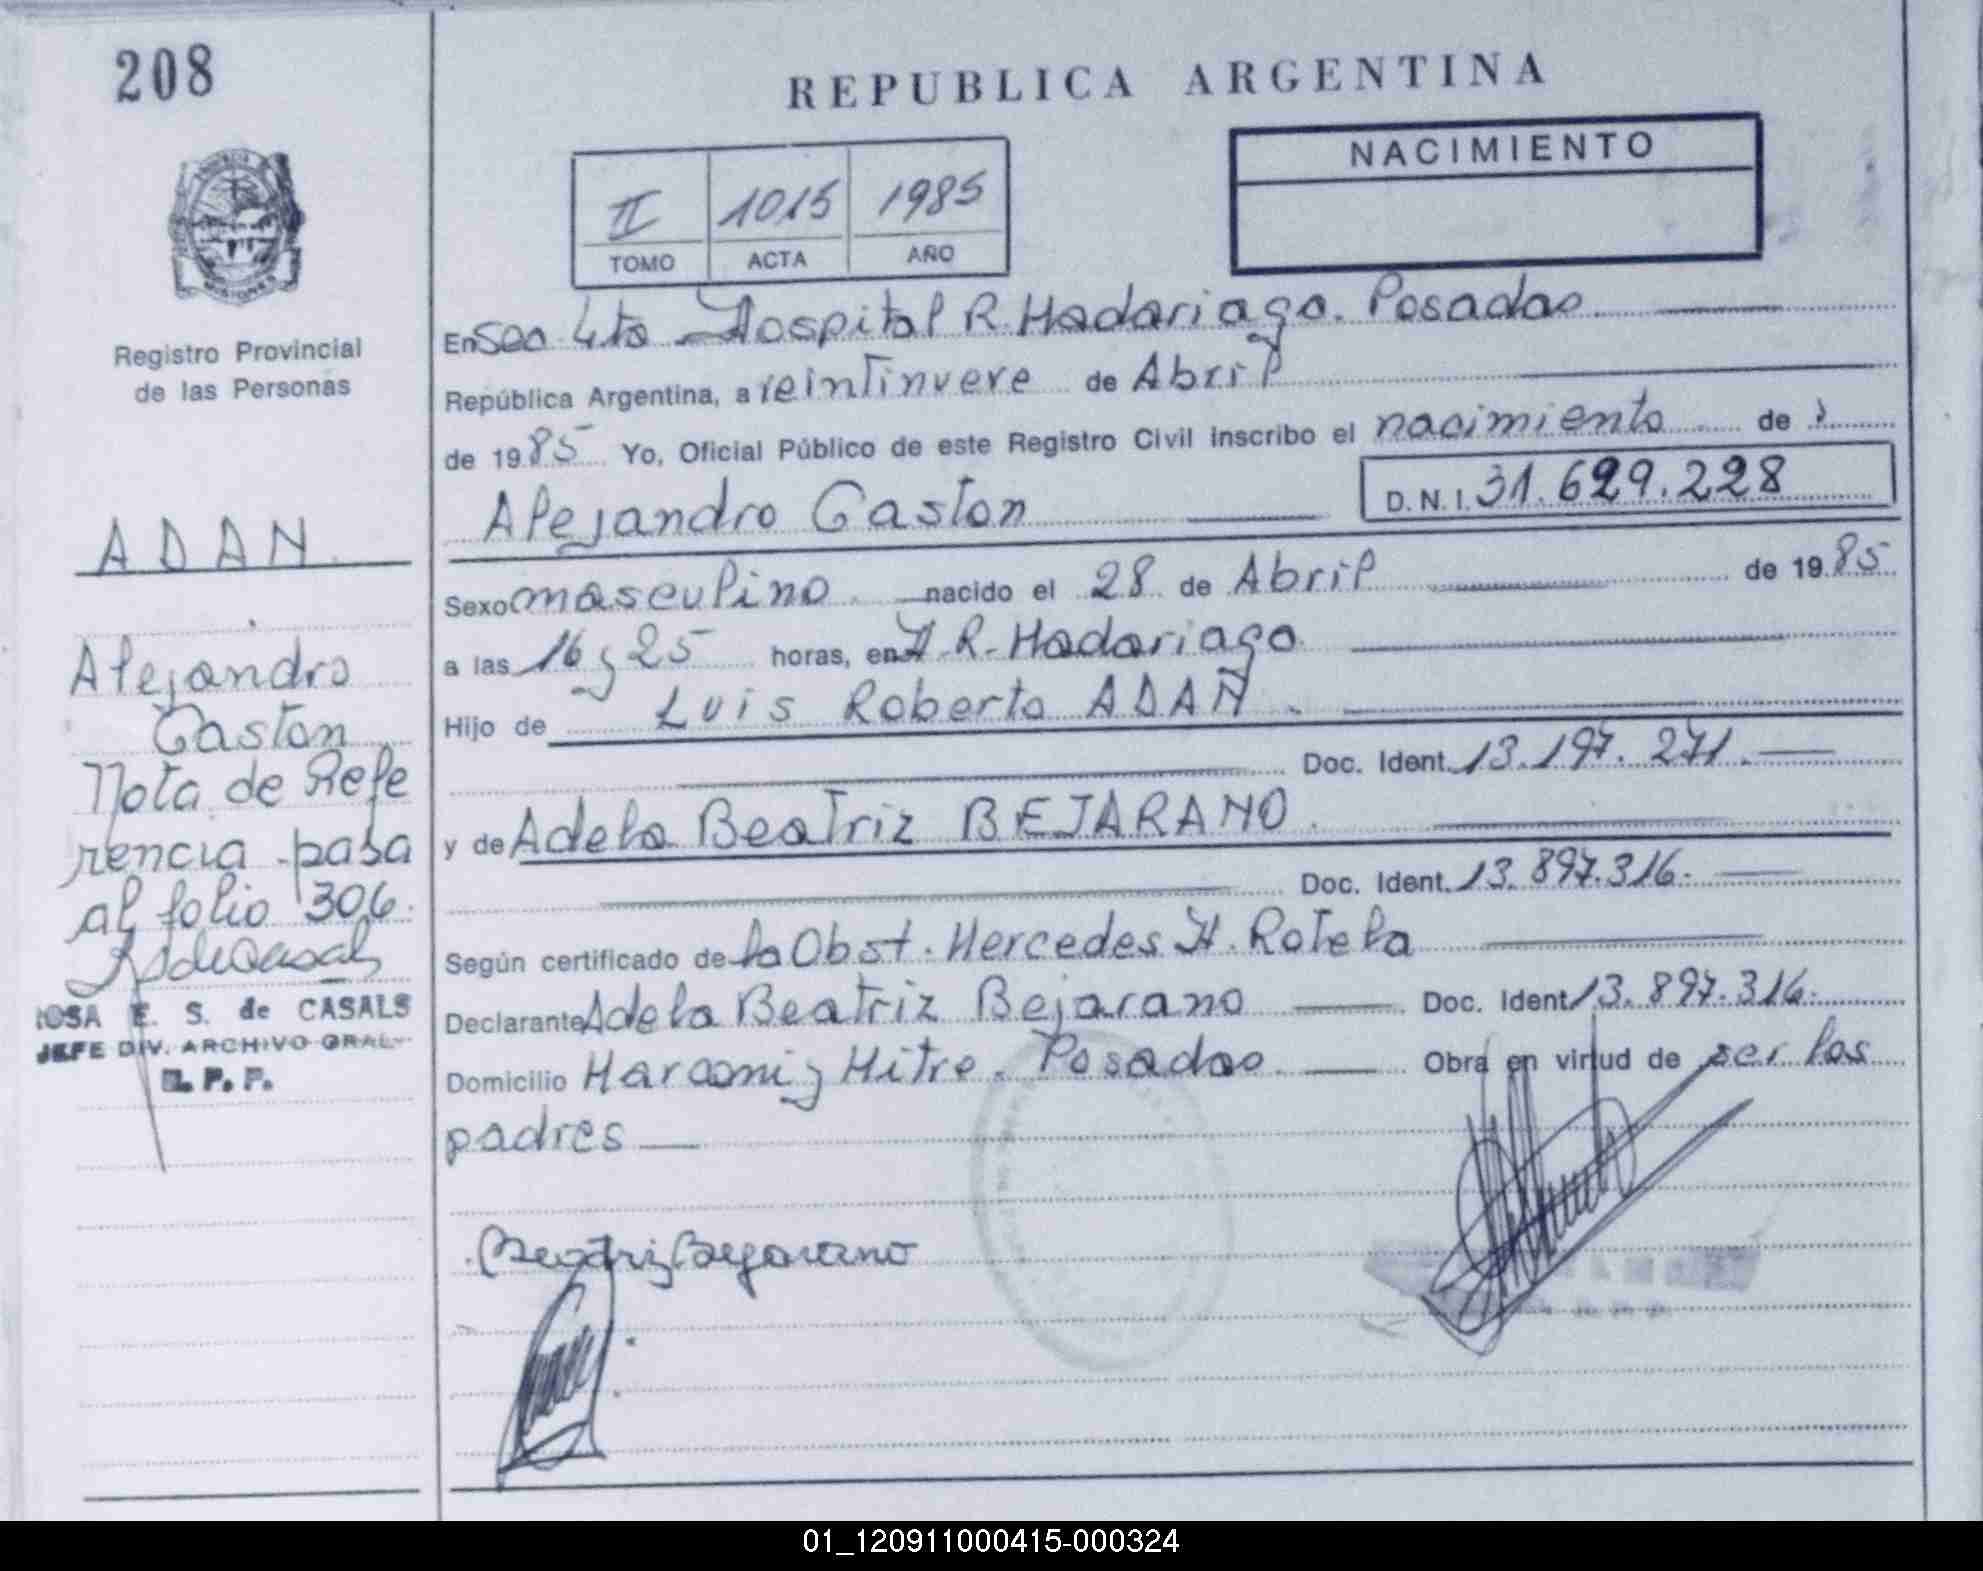 208
REPUBLICA ARGENTINA
NACIMIENTO
II 1015 1985
TOMO ACTA AÑO
MISIONES
Registro Provincial
de las Personas
En Sec. 4ta Hospital R. Madariaga. Posadas
República Argentina, a veintinueve de Abril
de 1985 Yo, Oficial Público de este Registro Civil inscribo el nacimiento de
Alejandro Gaston D.N.I. 31.629.228
Sexo masculino nacido el 28 de Abril de 1985
a las 16 y 25 horas, en H. R. Madariaga
Hijo de Luis Roberto ADAN
Doc. Ident. 13.197.271.
y de Adela Beatriz BEJARANO
Doc. Ident. 13.897.316.
Según certificado de la Obst. Mercedes H. Rotela
Declarante Adela Beatriz Bejarano Doc. Ident 13.897.316.
Domicilio Marconi y Mitre. Posadas Obra en virtud de ser los
padres
Beatriz Bejarano
ADAN
Alejandro
Gaston
Nota de Refe
rencia pasa
al folio 306.
ROSA E. S. de CASALS
JEFE DIV. ARCHIVO GRAL
R. P. P.
01_120911000415-000324